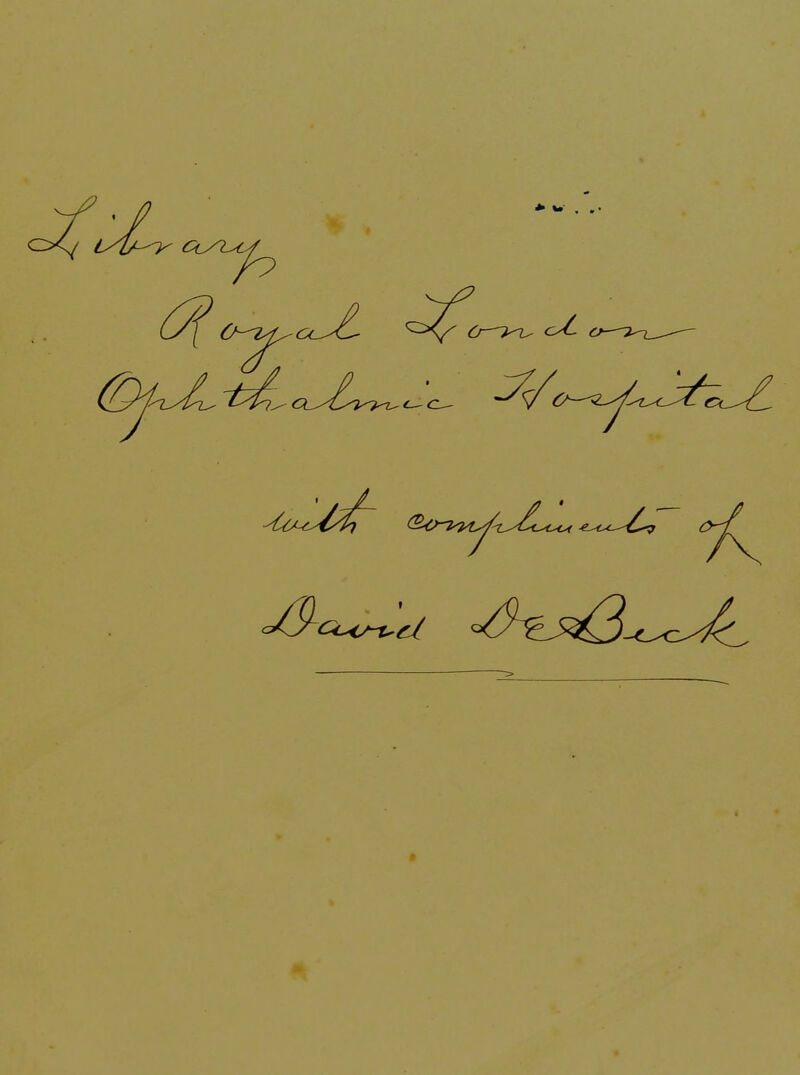 Library
Royal London
Ophthalmic Hospital
with compliments of
David DeBeck